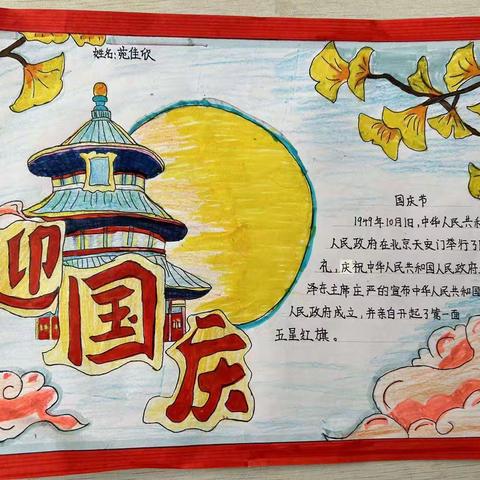 姓名:苑佳欣
迎国庆
国庆节
1949年10月1日,中华人民共和
人民政府在北京天安门举行了
礼,庆祝中华人民共和国人民政府
泽东主席庄严的宣布中华人民共和国
人民政府成立,并亲自升起了第一面
五星红旗。